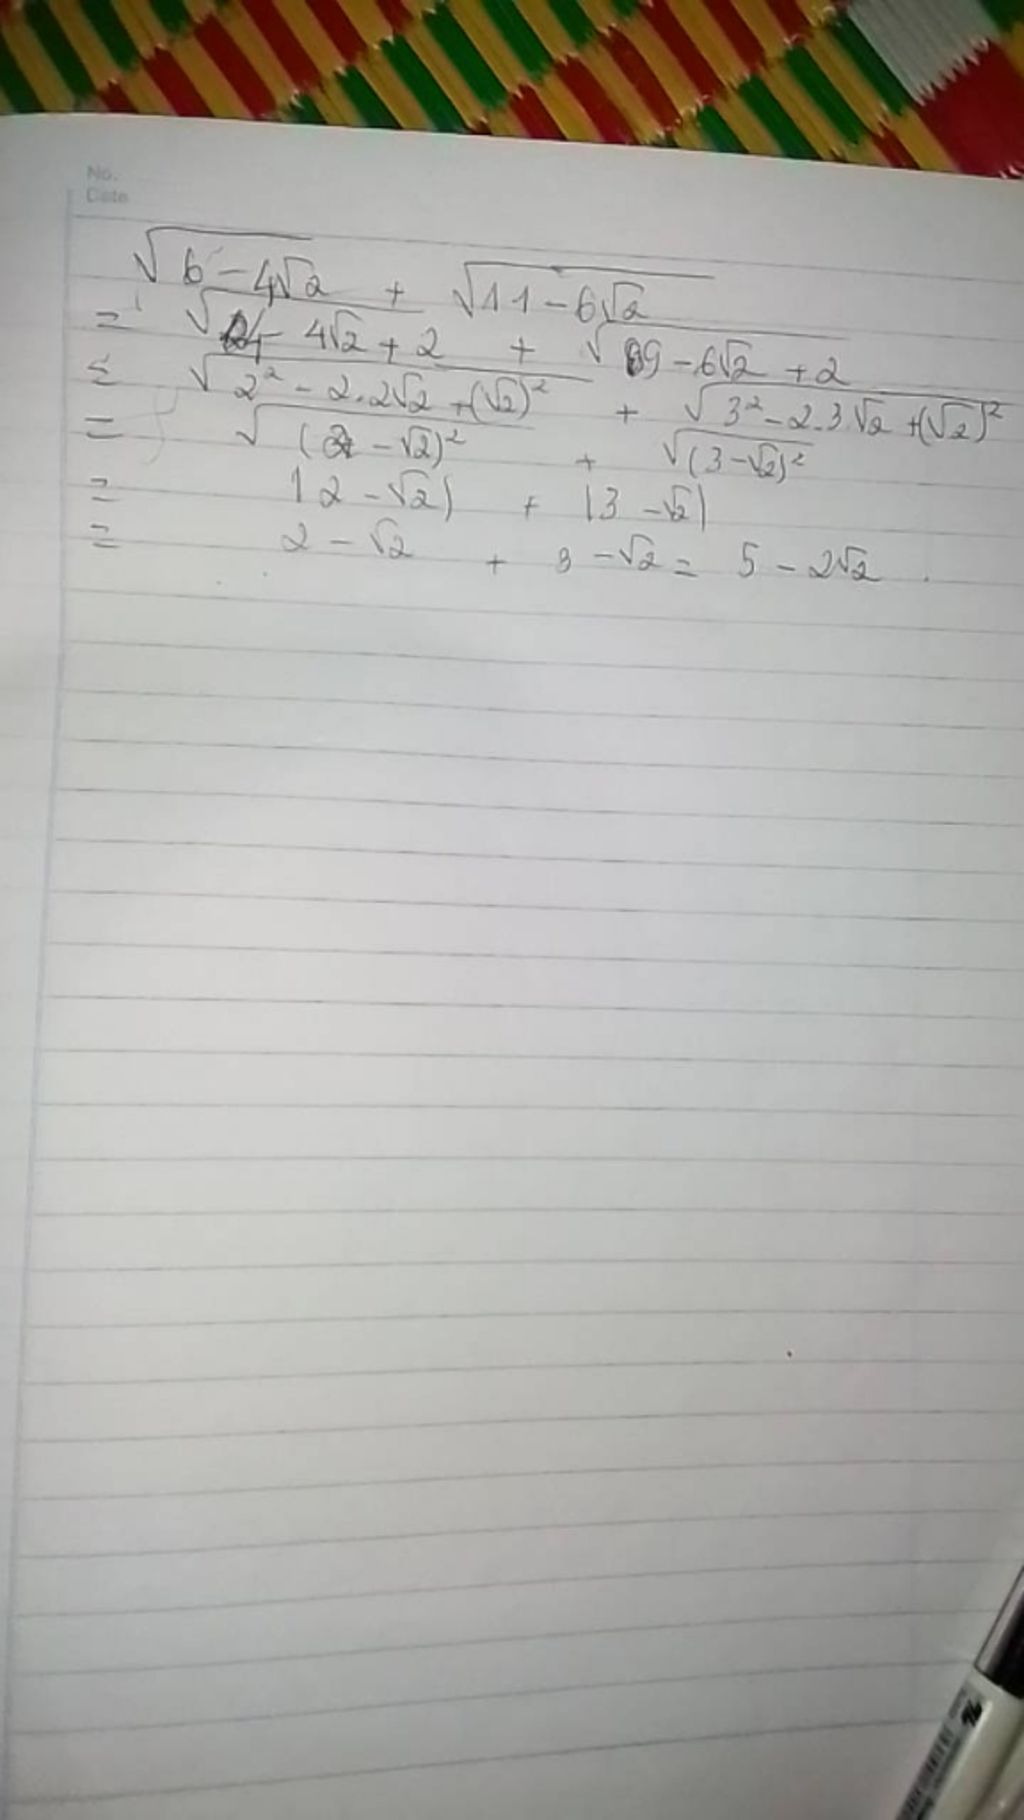 No.
Date
√(6 - 4√2) + √(11 - 6√2)
= √(4 - 4√2 + 2) + √(9 - 6√2 + 2)
= √(2² - 2.2√2 + (√2)²) + √(3² - 2.3√2 + (√2)²)
= √((2 - √2)²) + √((3 - √2)²)
= |2 - √2| + |3 - √2|
= 2 - √2 + 3 - √2 = 5 - 2√2